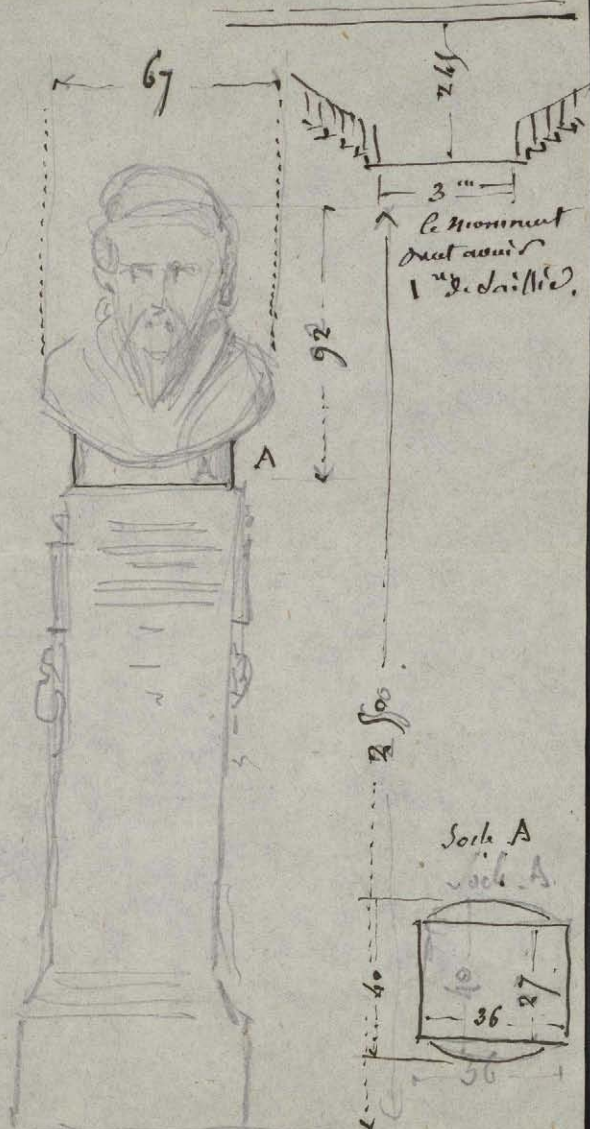 67
245
3 m
le monument
doit avoir
1 m de saillie.
92
A
2
Socle A
Socle A
40
40
27
36
36